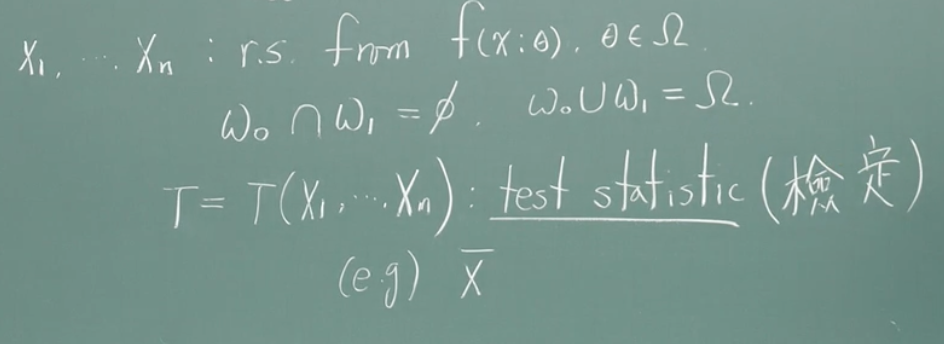 X₁, ⋯ Xₙ : r.s. from f(x:θ), θ∈Ω.
ω₀ ∩ ω₁ = ϕ. ω₀∪ω₁ = Ω.
T = T(X₁, ⋯ Xₙ) : test statistic (檢定)
(e.g) X̄